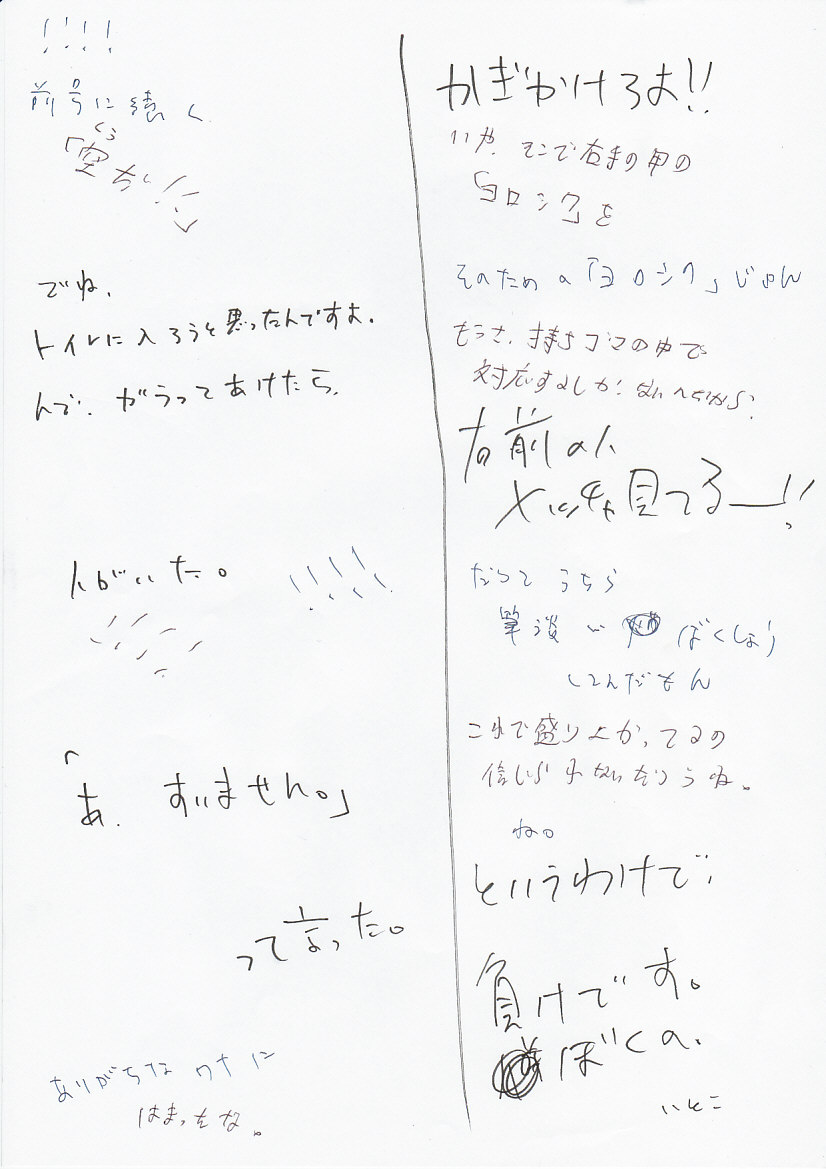 !!!!
前号に続く
「空ぢ!!
くう
でね、
トイレに入ろうと思ったんですよ。
んで、ガラってあけたら、
人がいた。
!!!!
「あ、すいません。」
って言った。
ありがちなワナに
はまったな。
かぎかけろよ!!
いや、そこで右手の甲の
「ヨロシク」を
そのための「ヨロシク」じゃん
もうさ、持ちゴマの中で
対応するしか
右前の人
メッチャ見てるー!!
だって うちら
筆談で ばくしょう
してんだもん
これで盛り上がってるの
信じられないだろうね。
ね。
というわけで、
負けです。
ぼくの。
いとこ